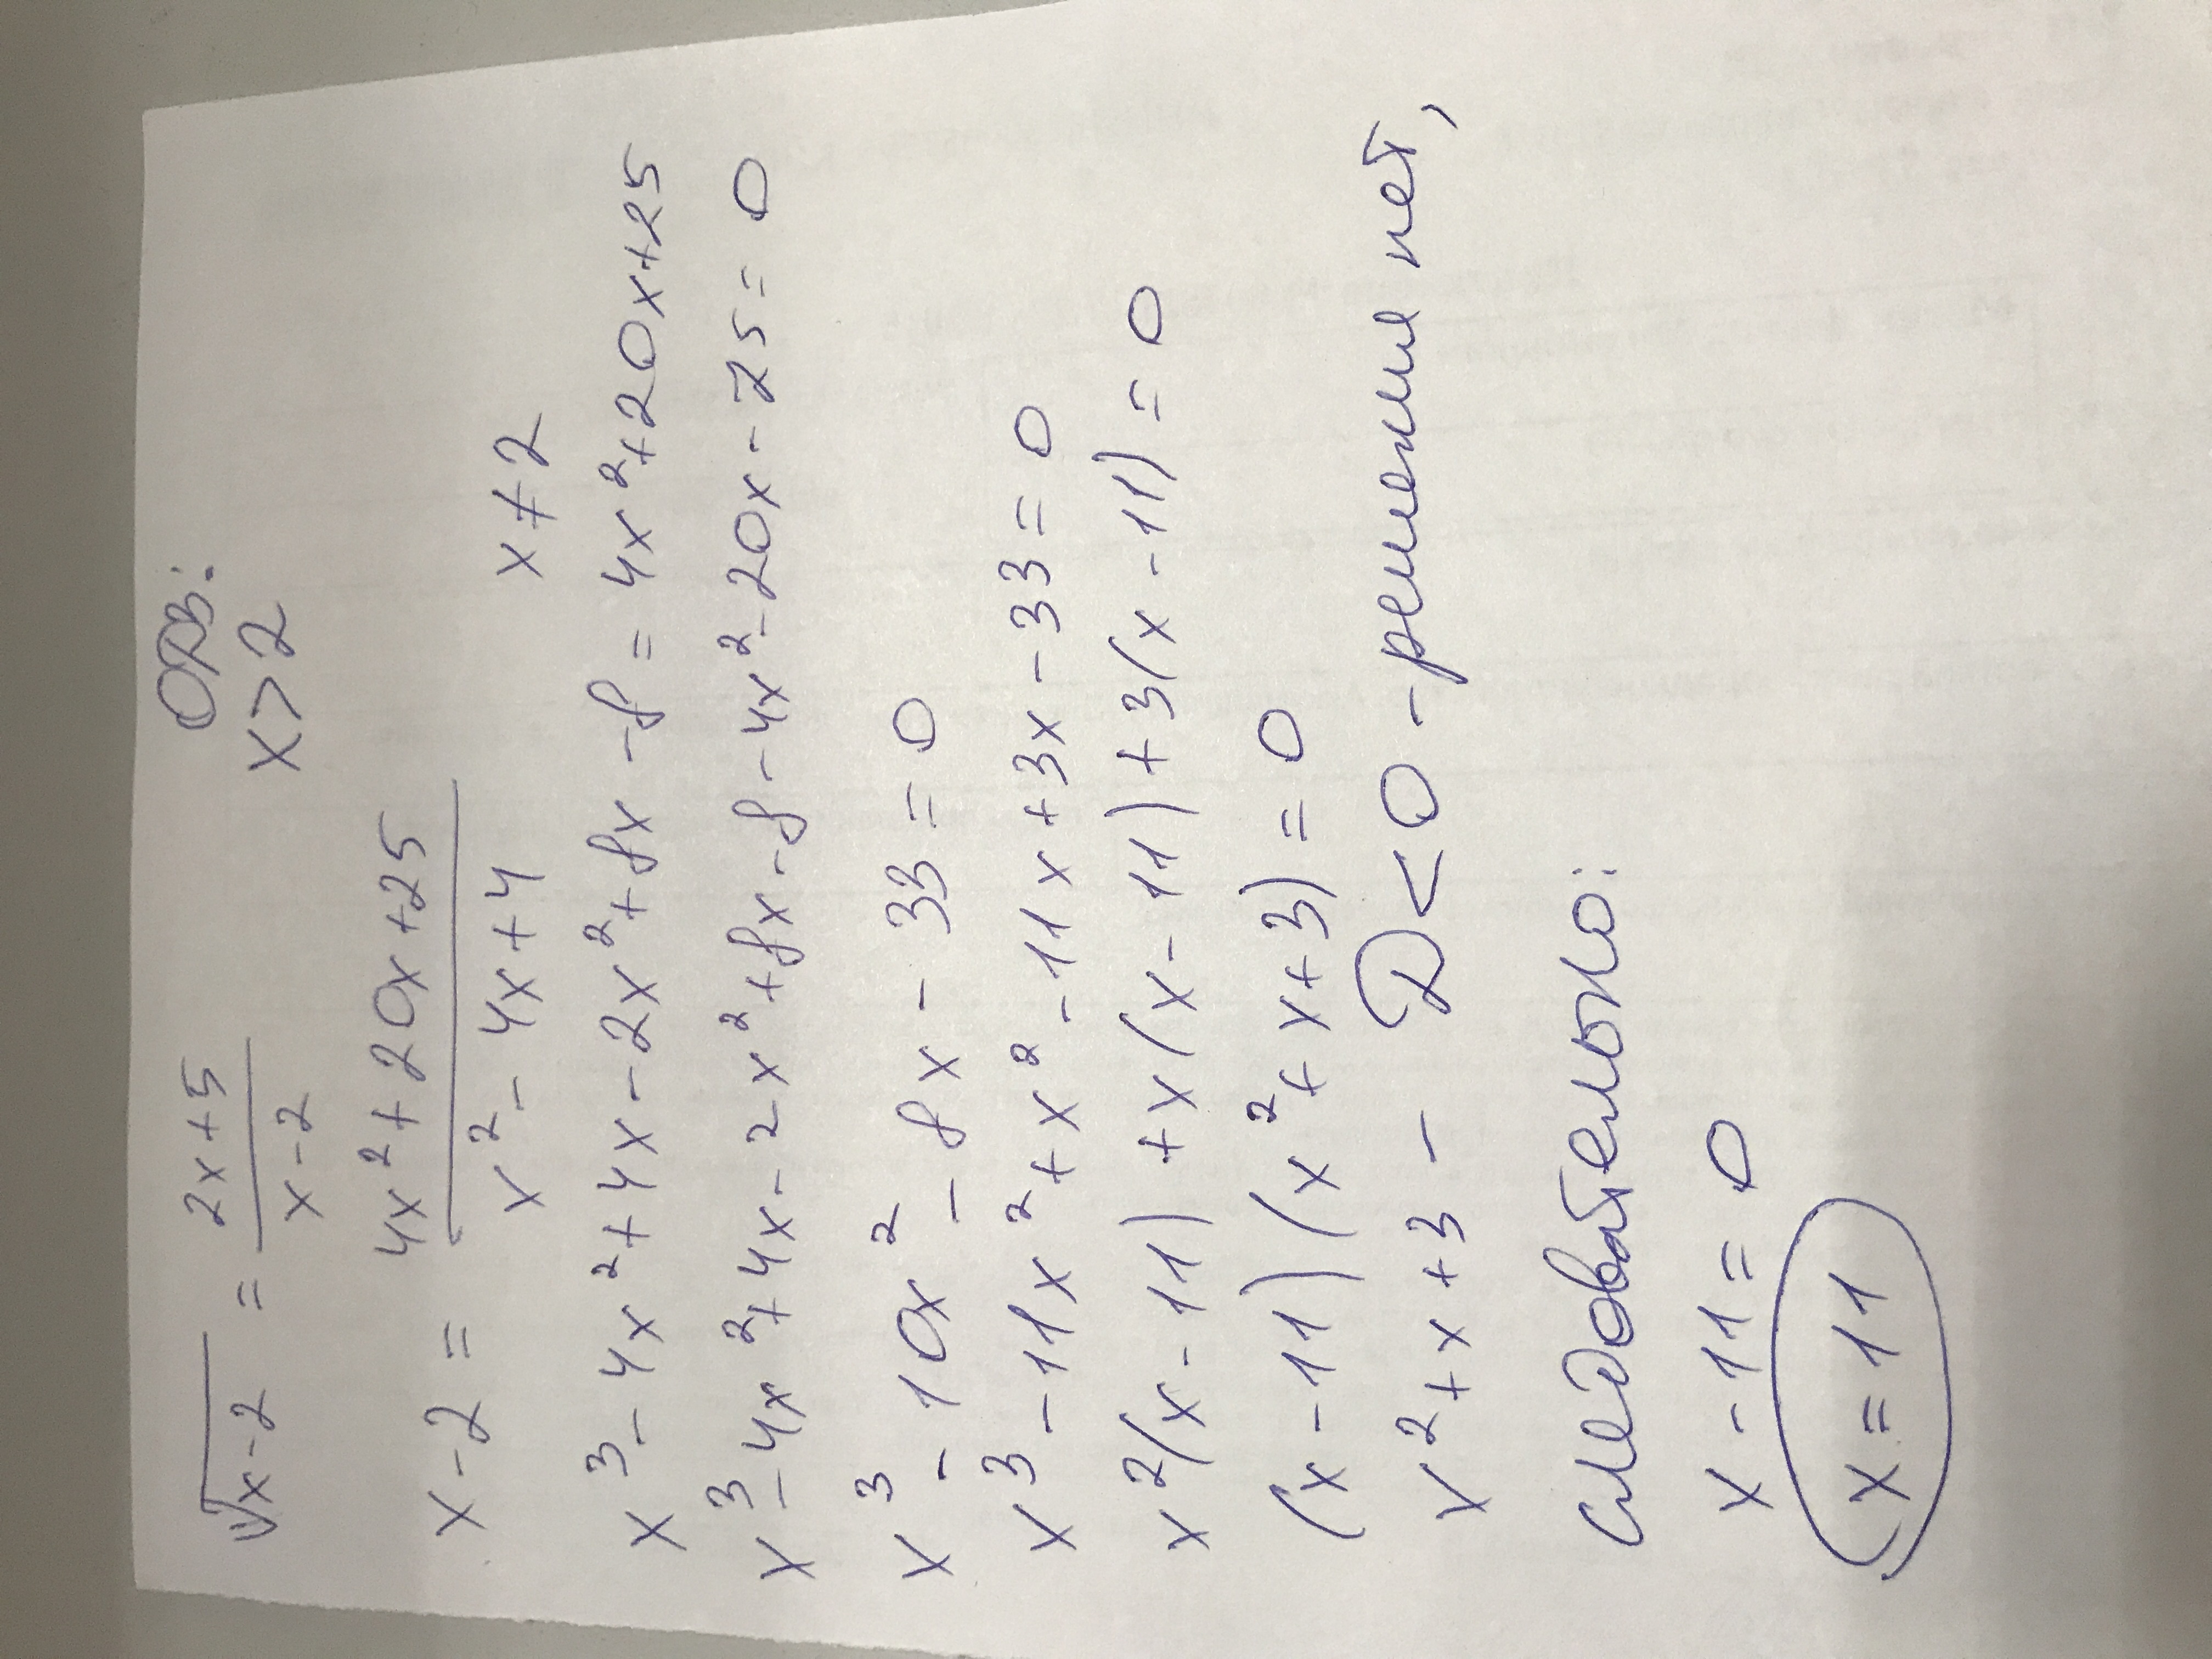 √x-2 = 2x+5 / x-2 ОДЗ:
x>2
x-2 = 4x²+20x+25 / x²-4x+4 x≠2
x³-4x²+4x-2x²+8x-8=4x²+20x+25
x³-4x²+4x-2x²+8x-8-4x²-20x-25=0
x³-10x²-8x-33=0
x³-11x²+x²-11x+3x-33=0
x²(x-11)+x(x-11)+3(x-11)=0
(x-11)(x²+x+3)=0
x²+x+3 - D<0 - решения нет,
следовательно:
x-11=0
x=11